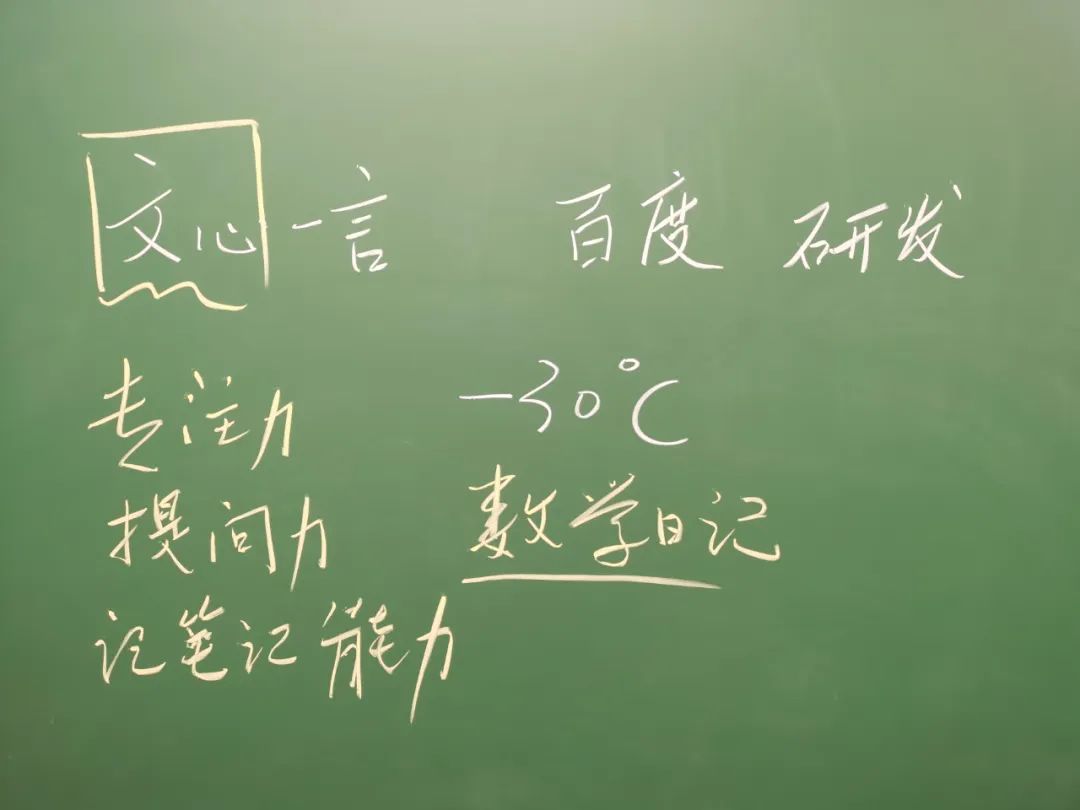 文心一言 百度 研发
专注力 -30℃
提问力 数学日记
记笔记能力